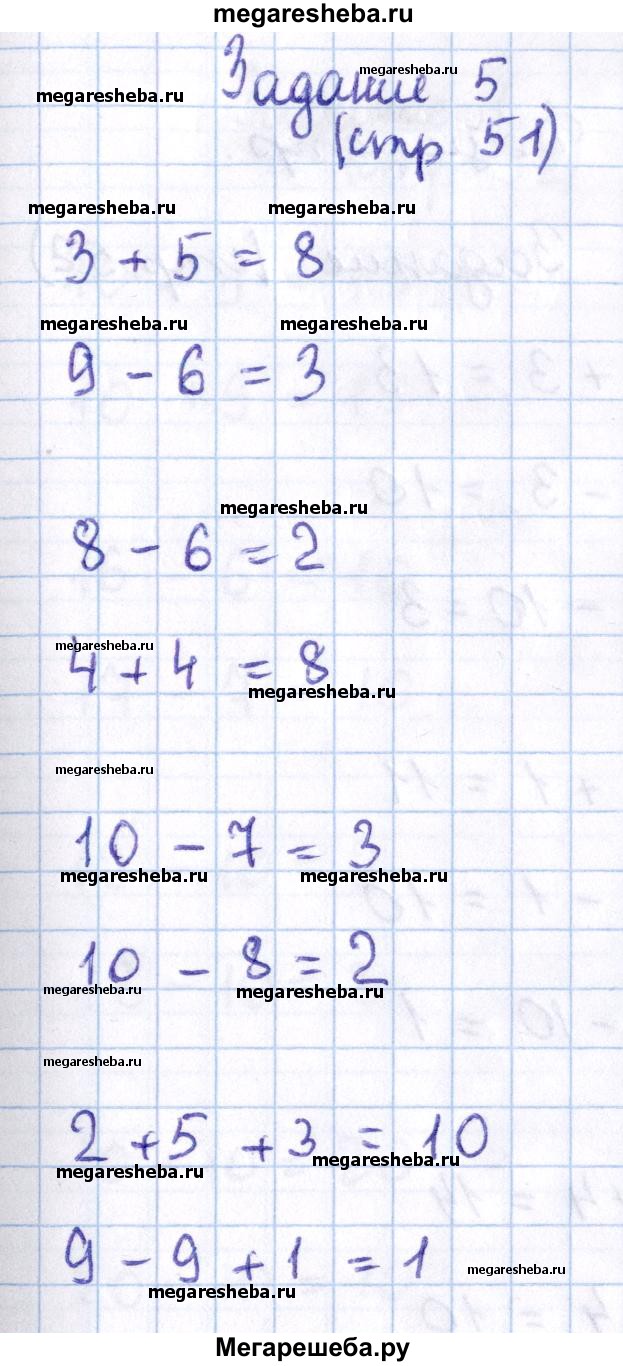 megaresheba.ru
Задание 5
megaresheba.ru
megaresheba.ru
(стр 51)
megaresheba.ru megaresheba.ru
3 + 5 = 8
megaresheba.ru megaresheba.ru
9 - 6 = 3
megaresheba.ru
8 - 6 = 2
megaresheba.ru
4 + 4 = 8
megaresheba.ru
megaresheba.ru
10 - 7 = 3
megaresheba.ru megaresheba.ru
10 - 8 = 2
megaresheba.ru megaresheba.ru
megaresheba.ru
2 + 5 + 3 = 10
megaresheba.ru megaresheba.ru
9 - 9 + 1 = 1
megaresheba.ru
megaresheba.ru
Мегарешеба.ру